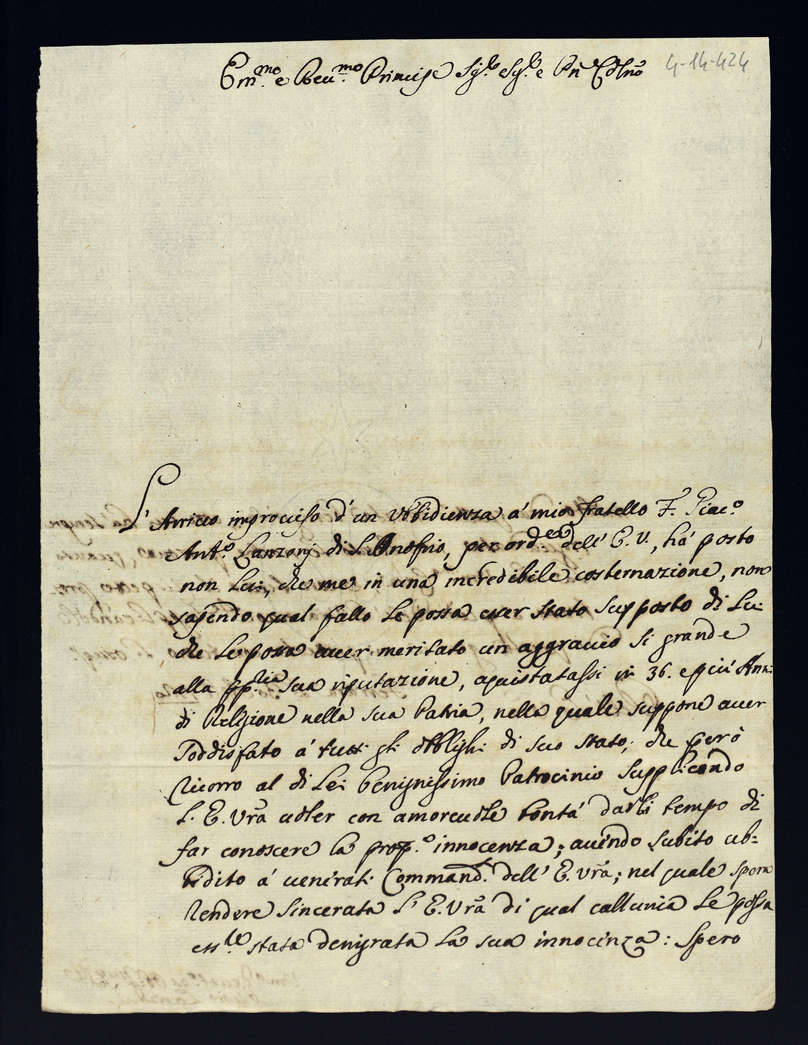 Em.mo e Reu.mo Principe Sig.re e Pñ Cõlño
4-14-424
L' Arriuo improuiso d' un Vbbidienza á mio fratello F. Giac.o
Ant.o Lanzonj di S. Onofrio, per ord.e dell' E. V., há posto
non Lui, che me in una incredibile costernazione, non
sapendo qual fallo Le possa esser stato supposto di Lui
che Le possa auer meritato un aggrauio si grande
alla pp.ria sua riputazione, aquistatassi in 36. e più Ann:
di Religione nella sua Patria, nella quale suppone auer
soddisfato á tutti gli obblighi di suo stato; che peró
ricorro al di Lei benignissimo Patrocinio supplicando
L' E. Vrã uoler con amoreuole bontá darli tempo di
far conoscere la prop.a innocenza; auendo subito ub=
bidito á uenerati Command.i dell' E. Vrã; nel quale spera
rendere sincerata L' E. Vrã di qual callunia Le possa
stata denigrata La sua innocenza: Spero